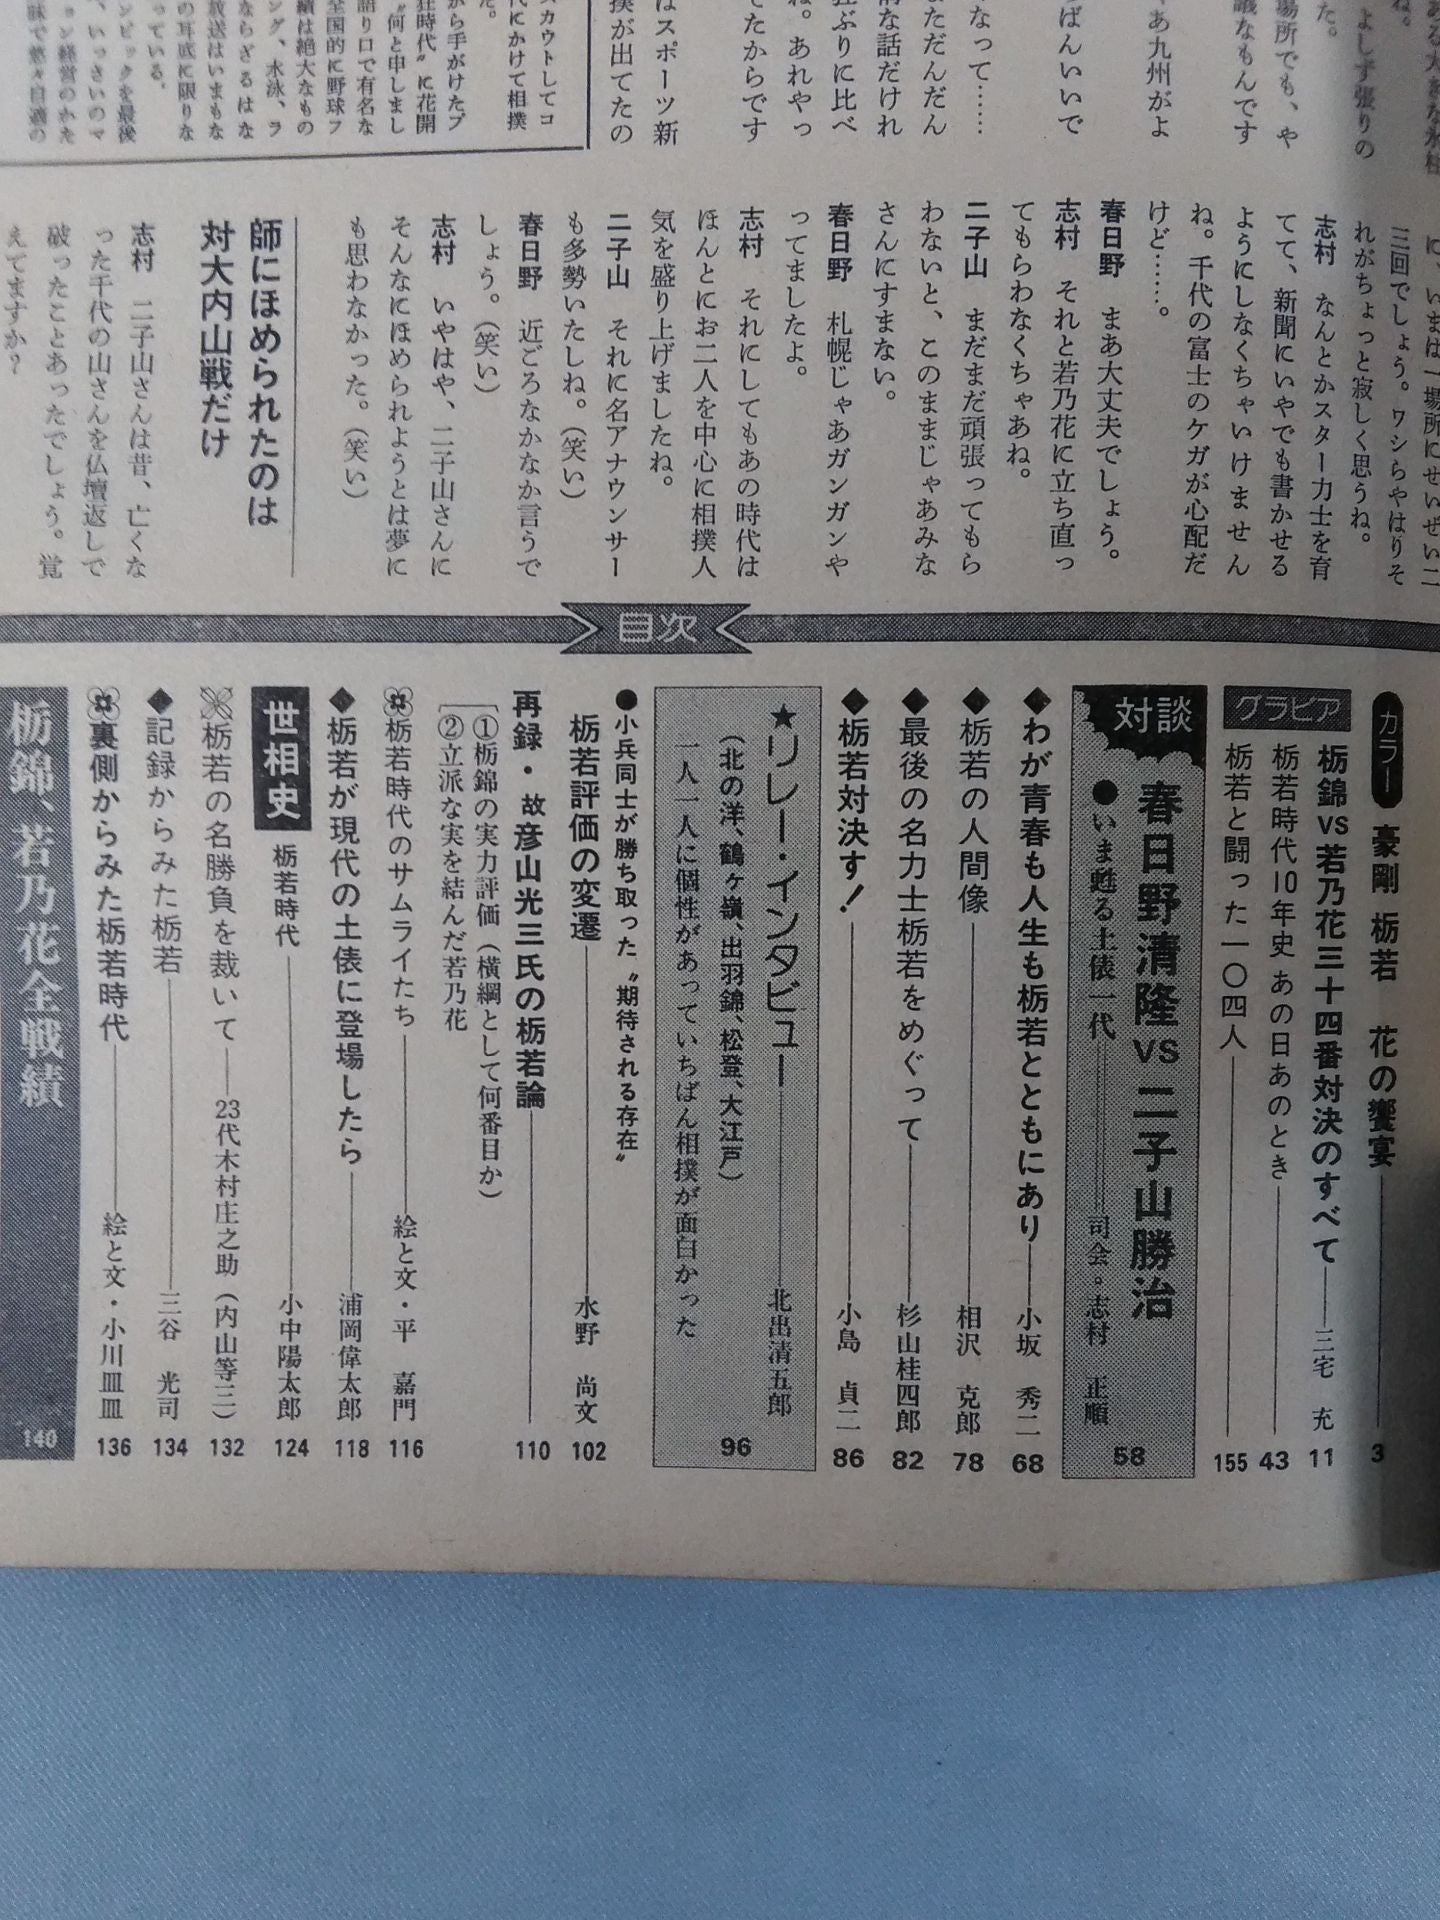 ある大きな氷柱
ね。
よしず張りの
場所でも、や
た。
議なもんです
やあ九州がよ
ちばんいいで
なって……
まだんだん
な話だけれ
狂ぶりに比べ
ね。あれやっ
てたからです
はスポーツ新
撲が出てたの
スカウトしてコ
代にかけて相撲
た。
がら手がけたブ
狂時代〟に花開
〝何と申しまし
語り口で有名な
全国的に野球フ
績は絶大なもの
ング、水泳、ラ
ならざるはな
放送はいまもな
の耳底に限りな
っている。
ンピックを最後
、いっさいのマ
ョン経営のかた
味で悠々自適の
に、いまは一場所にせいぜい二
三回でしょう。ワシらやはりそ
れがちょっと寂しく思うね。
志村 なんとかスター力士を育
てて、新聞にいやでも書かせる
ようにしなくちゃいけません
ね。千代の富士のケガが心配だ
けど……。
春日野 まあ大丈夫でしょう。
志村 それと若乃花に立ち直っ
てもらわなくちゃあね。
二子山 まだまだ頑張ってもら
わないと、このままじゃあみな
さんにすまない。
春日野 札幌じゃあガンガンや
ってましたよ。
志村 それにしてもあの時代は
ほんとにお二人を中心に相撲人
気を盛り上げましたね。
二子山 それに名アナウンサー
も多勢いたしね。(笑い)
春日野 近ごろなかなか言うで
しょう。(笑い)
志村 いやはや、二子山さんに
そんなにほめられようとは夢に
も思わなかった。(笑い)
師にほめられたのは
対大内山戦だけ
志村 二子山さんは昔、亡くな
った千代の山さんを仏壇返しで
破ったことあったでしょう。覚
えてますか?
目次
カラー 豪剛 栃若 花の饗宴 3
グラビア
栃錦VS若乃花三十四番対決のすべて 三宅 充 11
栃若時代10年史 あの日あのとき 43
栃若と闘った一〇四人 155
対談 春日野清隆VS二子山勝治
●いま甦る土俵一代 司会・志村 正順 58
◆わが青春も人生も栃若とともにあり 小坂 秀二 68
◆栃若の人間像 相沢 克郎 78
◆最後の名力士栃若をめぐって 杉山桂四郎 82
◆栃若対決す! 小島 貞二 86
★リレー・インタビュー 北出清五郎
(北の洋、鶴ヶ嶺、出羽錦、松登、大江戸)
一人一人に個性があっていちばん相撲が面白かった 96
●小兵同士が勝ち取った〝期待される存在〟
栃若評価の変遷 水野 尚文 102
再録・故彦山光三氏の栃若論 110
①栃錦の実力評価(横綱として何番目か)
②立派な実を結んだ若乃花
栃若時代のサムライたち 絵と文・平 嘉門 116
◆栃若が現代の土俵に登場したら 浦岡偉太郎 118
世相史 栃若時代 小中陽太郎 124
栃若の名勝負を裁いて 23代木村庄之助(内山等三) 132
◆記録からみた栃若 三谷 光司 134
裏側からみた栃若時代 絵と文・小川皿皿 136
栃錦、若乃花全戦績 140